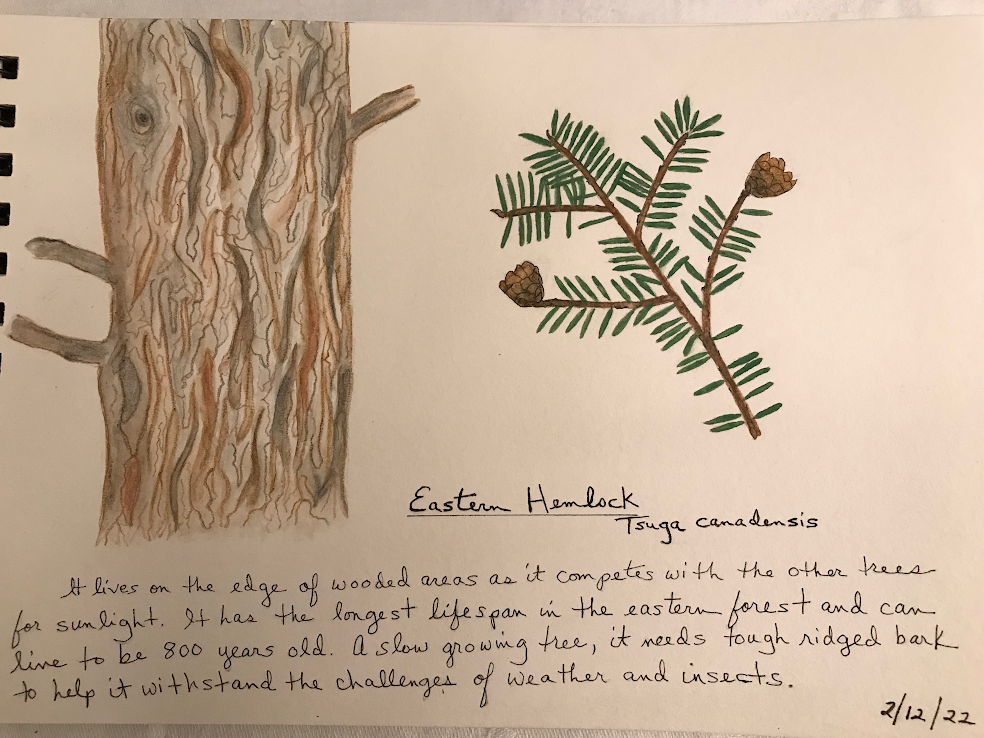 Eastern Hemlock
Tsuga canadensis
It lives on the edge of wooded areas as it competes with the other trees
for sunlight. It has the longest lifespan in the eastern forest and can
live to be 800 years old. A slow growing tree, it needs tough ridged bark
to help it withstand the challenges of weather and insects.
2/12/22